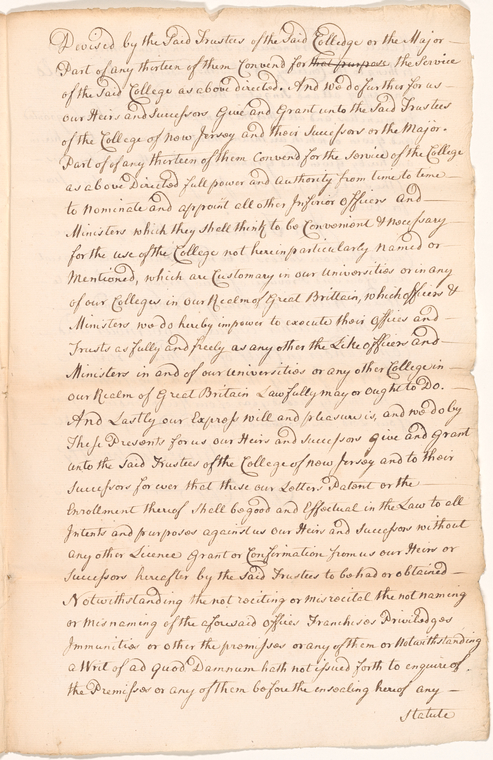 Devised by the Said Trustees of the Said Colledge or the Major
Part of any thirteen of them Convend for that purpose the Service
of the Said College as above directed. And we do further for us
our Heirs and Successors, Give and Grant unto the Said Trustees
of the College of New Jersey and their Successors or the Major.
Part of of any thirteen of them Convend for the Service of the College
as above Directed full power and authority from time to time
to nominate and appoint all other Inferior Officers and
Ministers which they Shall think to be Convenient & necessary
for the use of the College not herein particularly named or
Mentioned, which are Customary in our Universities or in any
of our Colleges in our Realm of Great Brittain, which officers &
Ministers we do hereby impower to execute their Offices and
Trusts as fully and freely as any other the Like officers and
Ministers in and of our universities or any other College in
our Realm of Great Britain Lawfully may or ought to Do.
And Lastly our Express will and pleasure is, and we do by
These Presents for us our Heirs and Successors give and Grant
unto the Said Trustees of the College of new Jersey and to their
Successors for ever that these our Letters Patent or the
Enrollment thereof Shall be good and Effectual in the Law to all
Intents and purposes against us our Heirs and Successors without
any other Licence Grant or Confirmation from us our Heirs or
Successors hereafter by the Said Trustees to be had or obtained
Notwithstanding the not reciting or misrecital the not naming
or misnaming of the aforesaid offices Franchises Priviledges
Immunities or other the premisses or any of them or Notwithstanding
a Writ of ad quod Damnum hath not issued forth to enquire of.
the Premisses or any of them before the ensealing hereof any
Statute